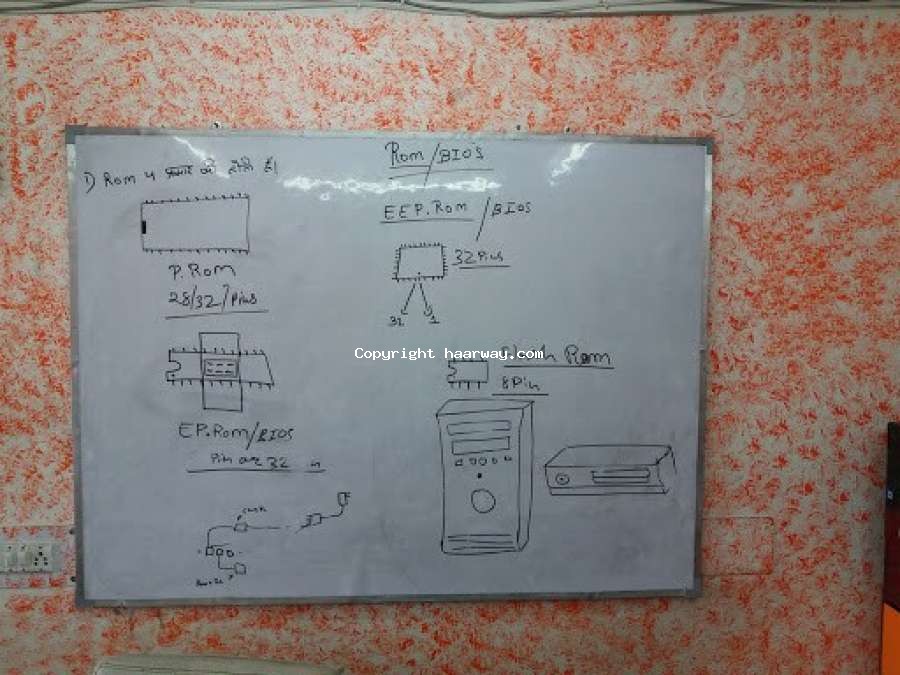 Rom/BIOS
1) Rom 4 प्रकार की होती है।
P.Rom
28/32 Pins
EP.Rom/BIOS
Pin are 32
EEP.Rom/BIOS
32 Pins
32 1
Rom
8 Pin
Copyright haarway.com